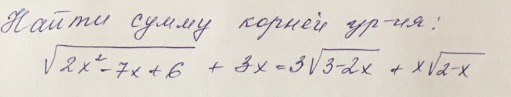 Найти сумму корней ур-ия:
√(2x²-7x+6) + 3x = 3√(3-2x) + x√(2-x)